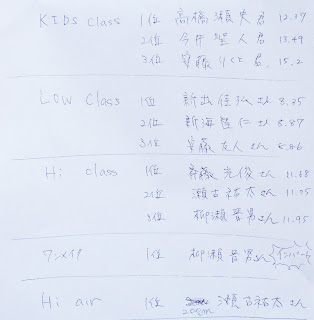 KIDS Class 1位 高橋瀬 君 12.37
2位 今井 人君 13.49
3位 安藤りくと君 15.2
Low Class 1位 新 さん 8.35
2位 新海 仁さん 8.87
3位 安藤友人さん
Hi class 1位 斉藤光俊さん
2位 瀬古祐太さん 11.75
3位 柳瀬晋男さん 11.95
ワンメイク 1位 柳瀬晋男さん インバート
Hi air 1位 瀬古祐太さん
200cm